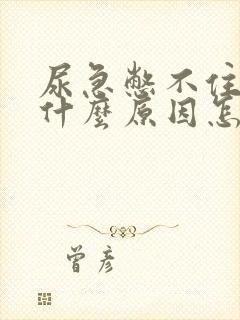 尿急憋不住
什麼原因怎
曾彥